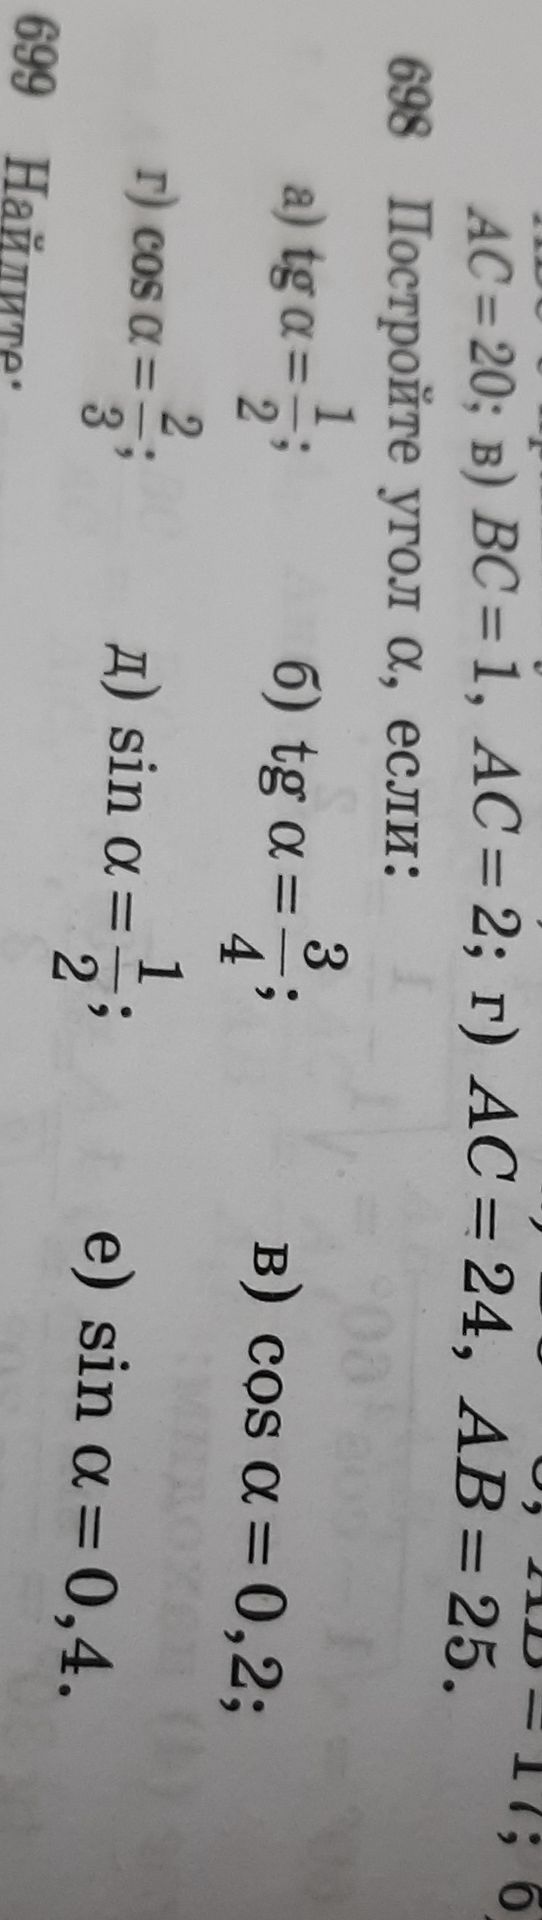 AC = 20; в) BC = 1, AC = 2; г) AC = 24, AB = 25.
698 Постройте угол α, если:
а) tg α = 1/2; б) tg α = 3/4; в) cos α = 0,2;
г) cos α = 2/3; д) sin α = 1/2; е) sin α = 0,4.
699 Найдите: